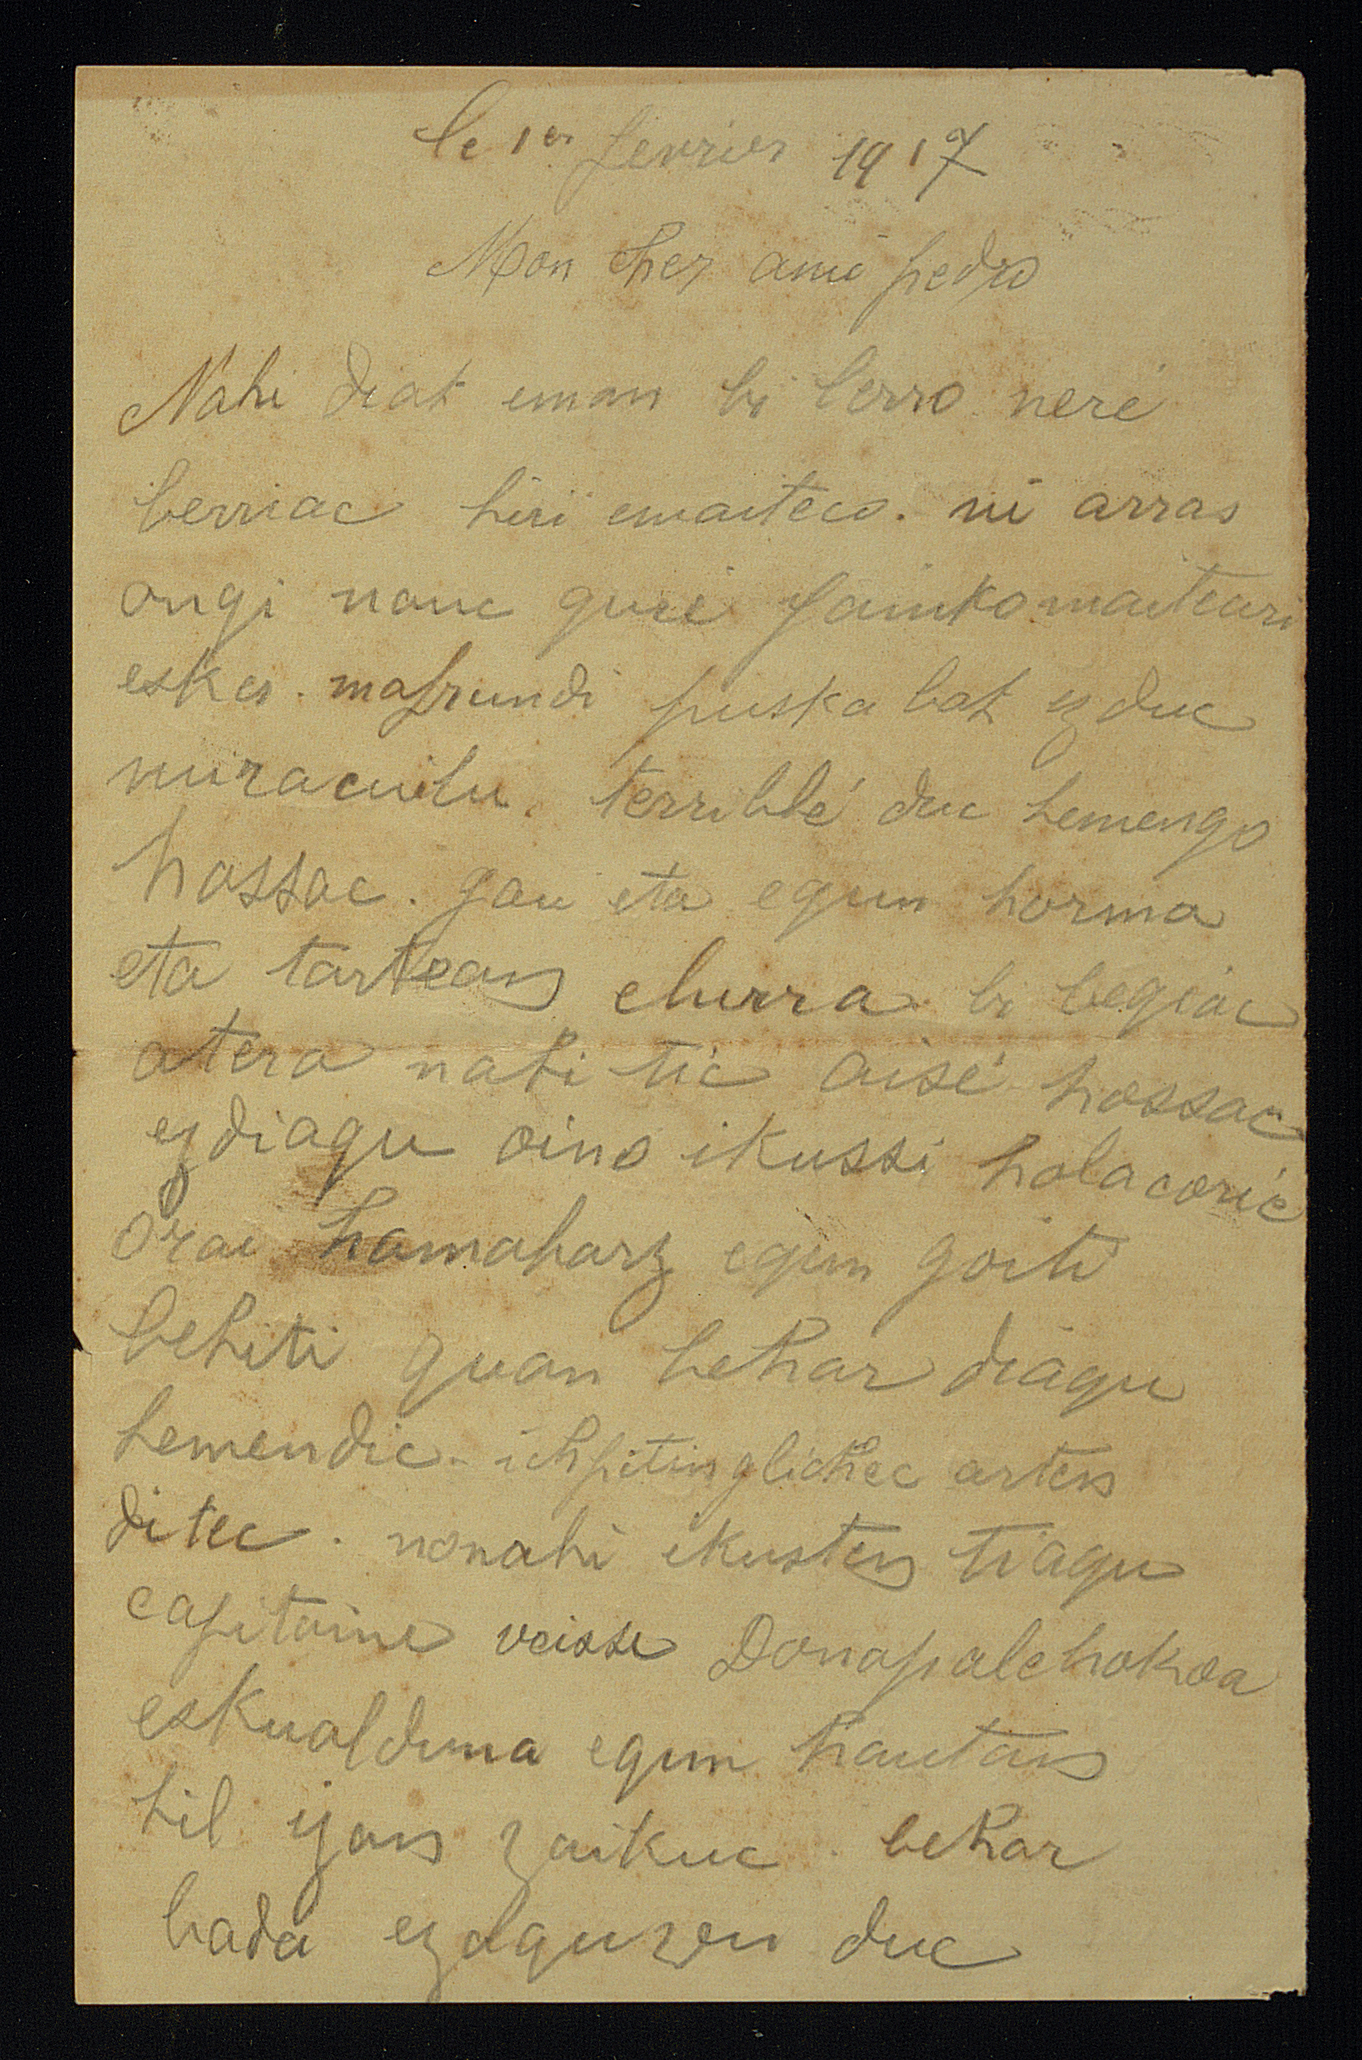 le 1er fevrier 1917
Mon cher ami pedro
Nahi diat eman bi lerro neré
berriac hiri emaiteco. ni arras
ongi nauc gure jainko maiteari
esker. mafrundi puska bat ez duc
miraculu. terriblé duc hemengo
hossac. gau eta egun horma
eta tartean elurra bi begiac
atera nahi tic aisé hossac
ez diagu oino ikussi holacoric
orai hamaharz egun goiti
behiti guan behar diagu
hemendic. ichpitin glichkec arten
ditec. nonahi ikusten tiagu
capitaine veisse Donapalehokoa
eskualduna egun hautan
hil izan zaikuc. behar
bada ezaguzen duc